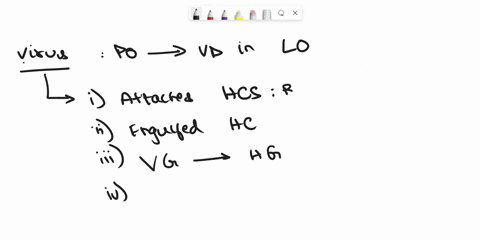 virus : PO → VD in LO
i) Attaches HCS : R
ii) Engulfed HC
iii) VG → HG
iv)